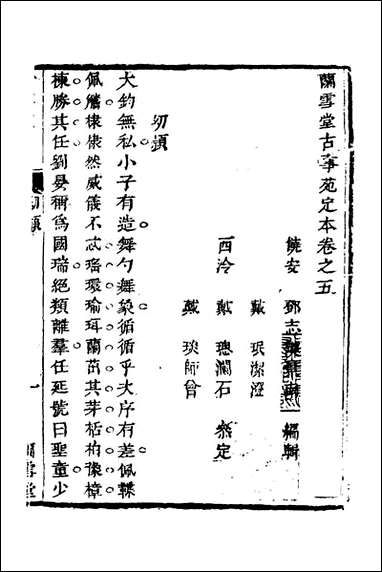 蘭雪堂古事苑定本卷之五
饒安 鄧志謨 編輯
戴 珉潔澄
西泠 戴 璁瀾石 叅定
戴 琅師曾
幼頴
大鈞無私小子有造舞勺舞象循循乎大序有差佩韘
佩觿棣棣然威儀不忒瑤環瑜珥蘭茁其芽栝柏豫樟
棟勝其任劉晏稱為國瑞絕類離羣任延號曰聖童少
幼頴
一
蘭雪堂